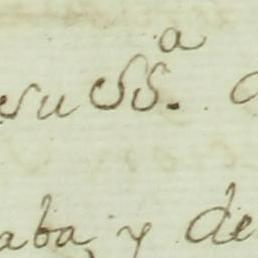 su SS.ª
aba, y de